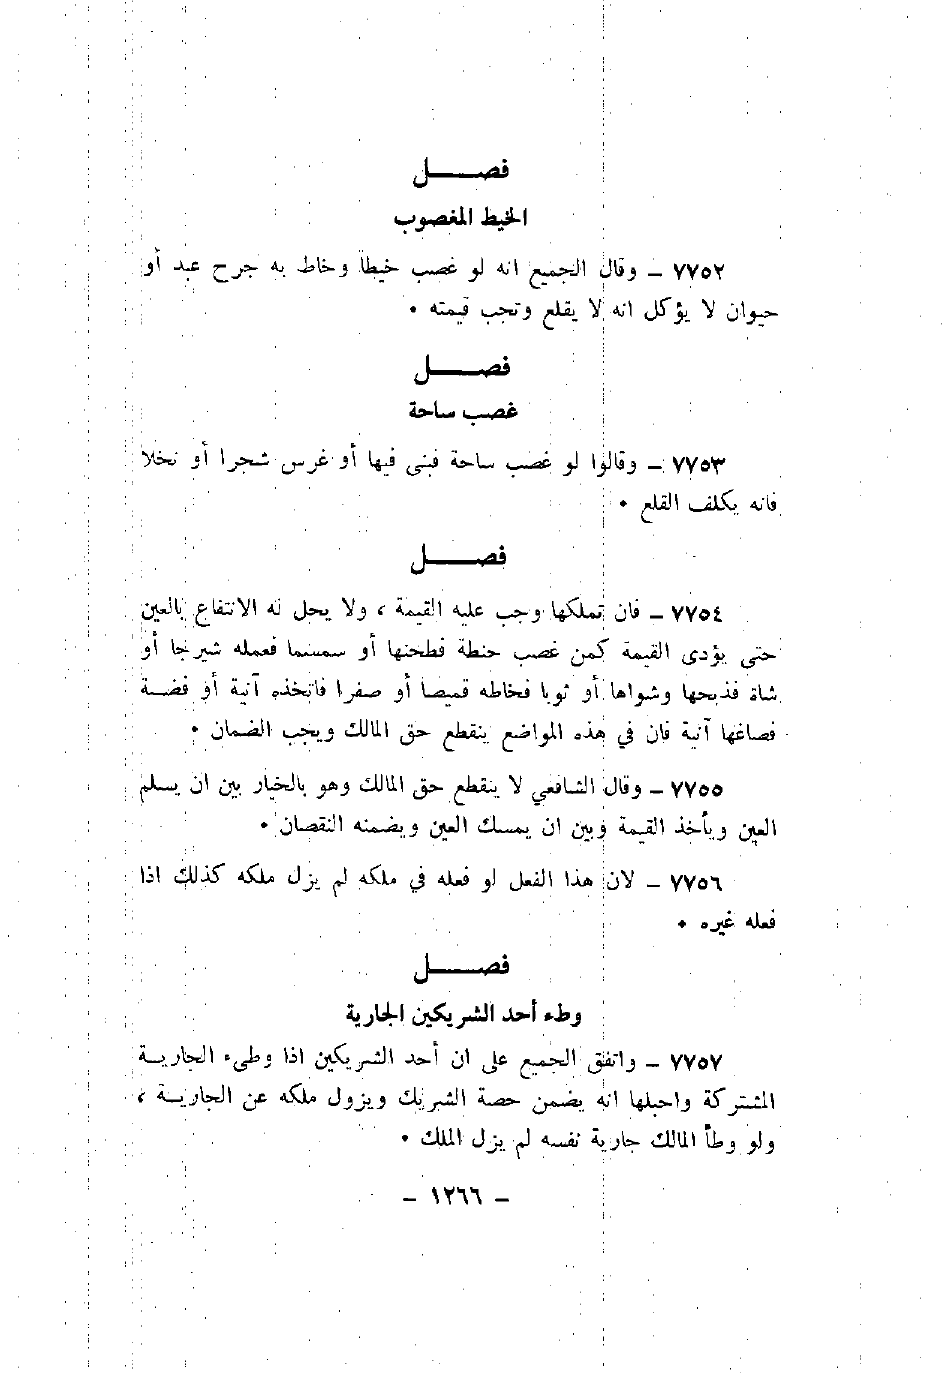 فصـــــل
الخيط المغصوب
٧٧٥٢ – وقال الجميع انه لو غصب خيطا وخاط به جرح عبد أو
حيوان لا يؤكل انه لا يقلع وتجب قيمته ٠
فصـــــل
غصب ساحة
٧٧٥٣ – وقالوا لو غصب ساحة فبنى فيها أو غرس شجرا أو نخلا
فانه يكلف القلع ٠
فصـــــل
٧٧٥٤ – فان تملكها وجب عليه القيمة ، ولا يحل له الانتفاع بالعين
حتى يؤدى القيمة كمن غصب حنطة فطحنها أو سمسما فعمله شيرجا أو
شاة فذبحها وشواها أو ثوبا فخاطه قميصا أو صفرا فاتخذه آنية أو فضة
فصاغها آنية فان في هذه المواضع ينقطع حق المالك ويجب الضمان ٠
٧٧٥٥ – وقال الشافعي لا ينقطع حق المالك وهو بالخيار بين ان يسلم
العين ويأخذ القيمة وبين ان يمسك العين ويضمنه النقصان ٠
٧٧٥٦ – لان هذا الفعل لو فعله في ملكه لم يزل ملكه كذلك اذا
فعله غيره ٠
فصـــــل
وطء أحد الشريكين الجارية
٧٧٥٧ – واتفق الجميع على ان أحد الشريكين اذا وطيء الجاريـة
المشتركة واحبلها انه يضمن حصة الشريك ويزول ملكه عن الجاريـة ،
ولو وطأ المالك جارية نفسه لم يزل الملك ٠
– ١٢٦٦ –